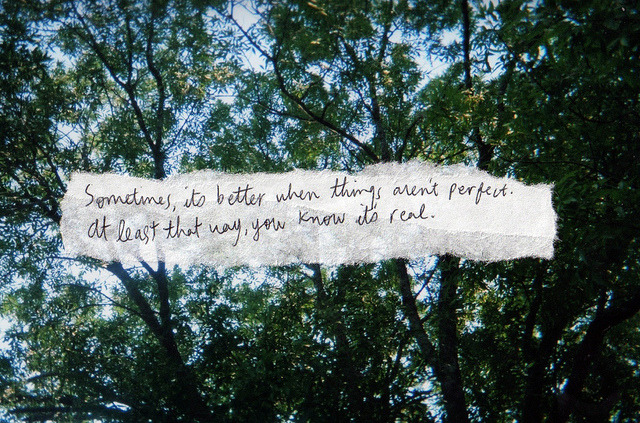 Sometimes, its better when things aren't perfect.
At least that way, you know its real.